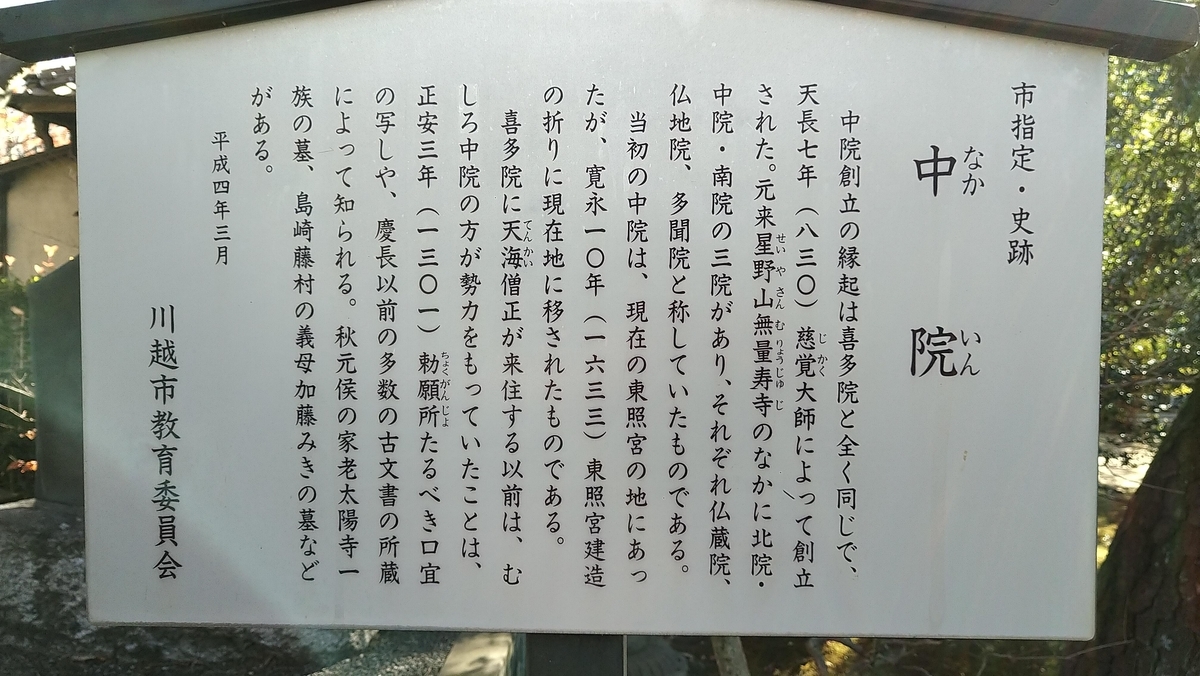 市指定・史跡
中院
なかいん
中院創立の縁起は喜多院と全く同じで、
天長七年（八三〇）慈覚大師によって創立
じかく
された。元来星野山無量寿寺のなかに北院・
せいやさんむりょうじゅじ
中院・南院の三院があり、それぞれ仏蔵院、
仏地院、多聞院と称していたものである。
当初の中院は、現在の東照宮の地にあっ
たが、寛永一〇年（一六三三）東照宮建造
の折りに現在地に移されたものである。
喜多院に天海僧正が来住する以前は、む
てんかい
しろ中院の方が勢力をもっていたことは、
正安三年（一三〇一）勅願所たるべき口宜
ちょくがんじょ
の写しや、慶長以前の多数の古文書の所蔵
によって知られる。秋元侯の家老太陽寺一
族の墓、島崎藤村の義母加藤みきの墓など
がある。
平成四年三月
川越市教育委員会